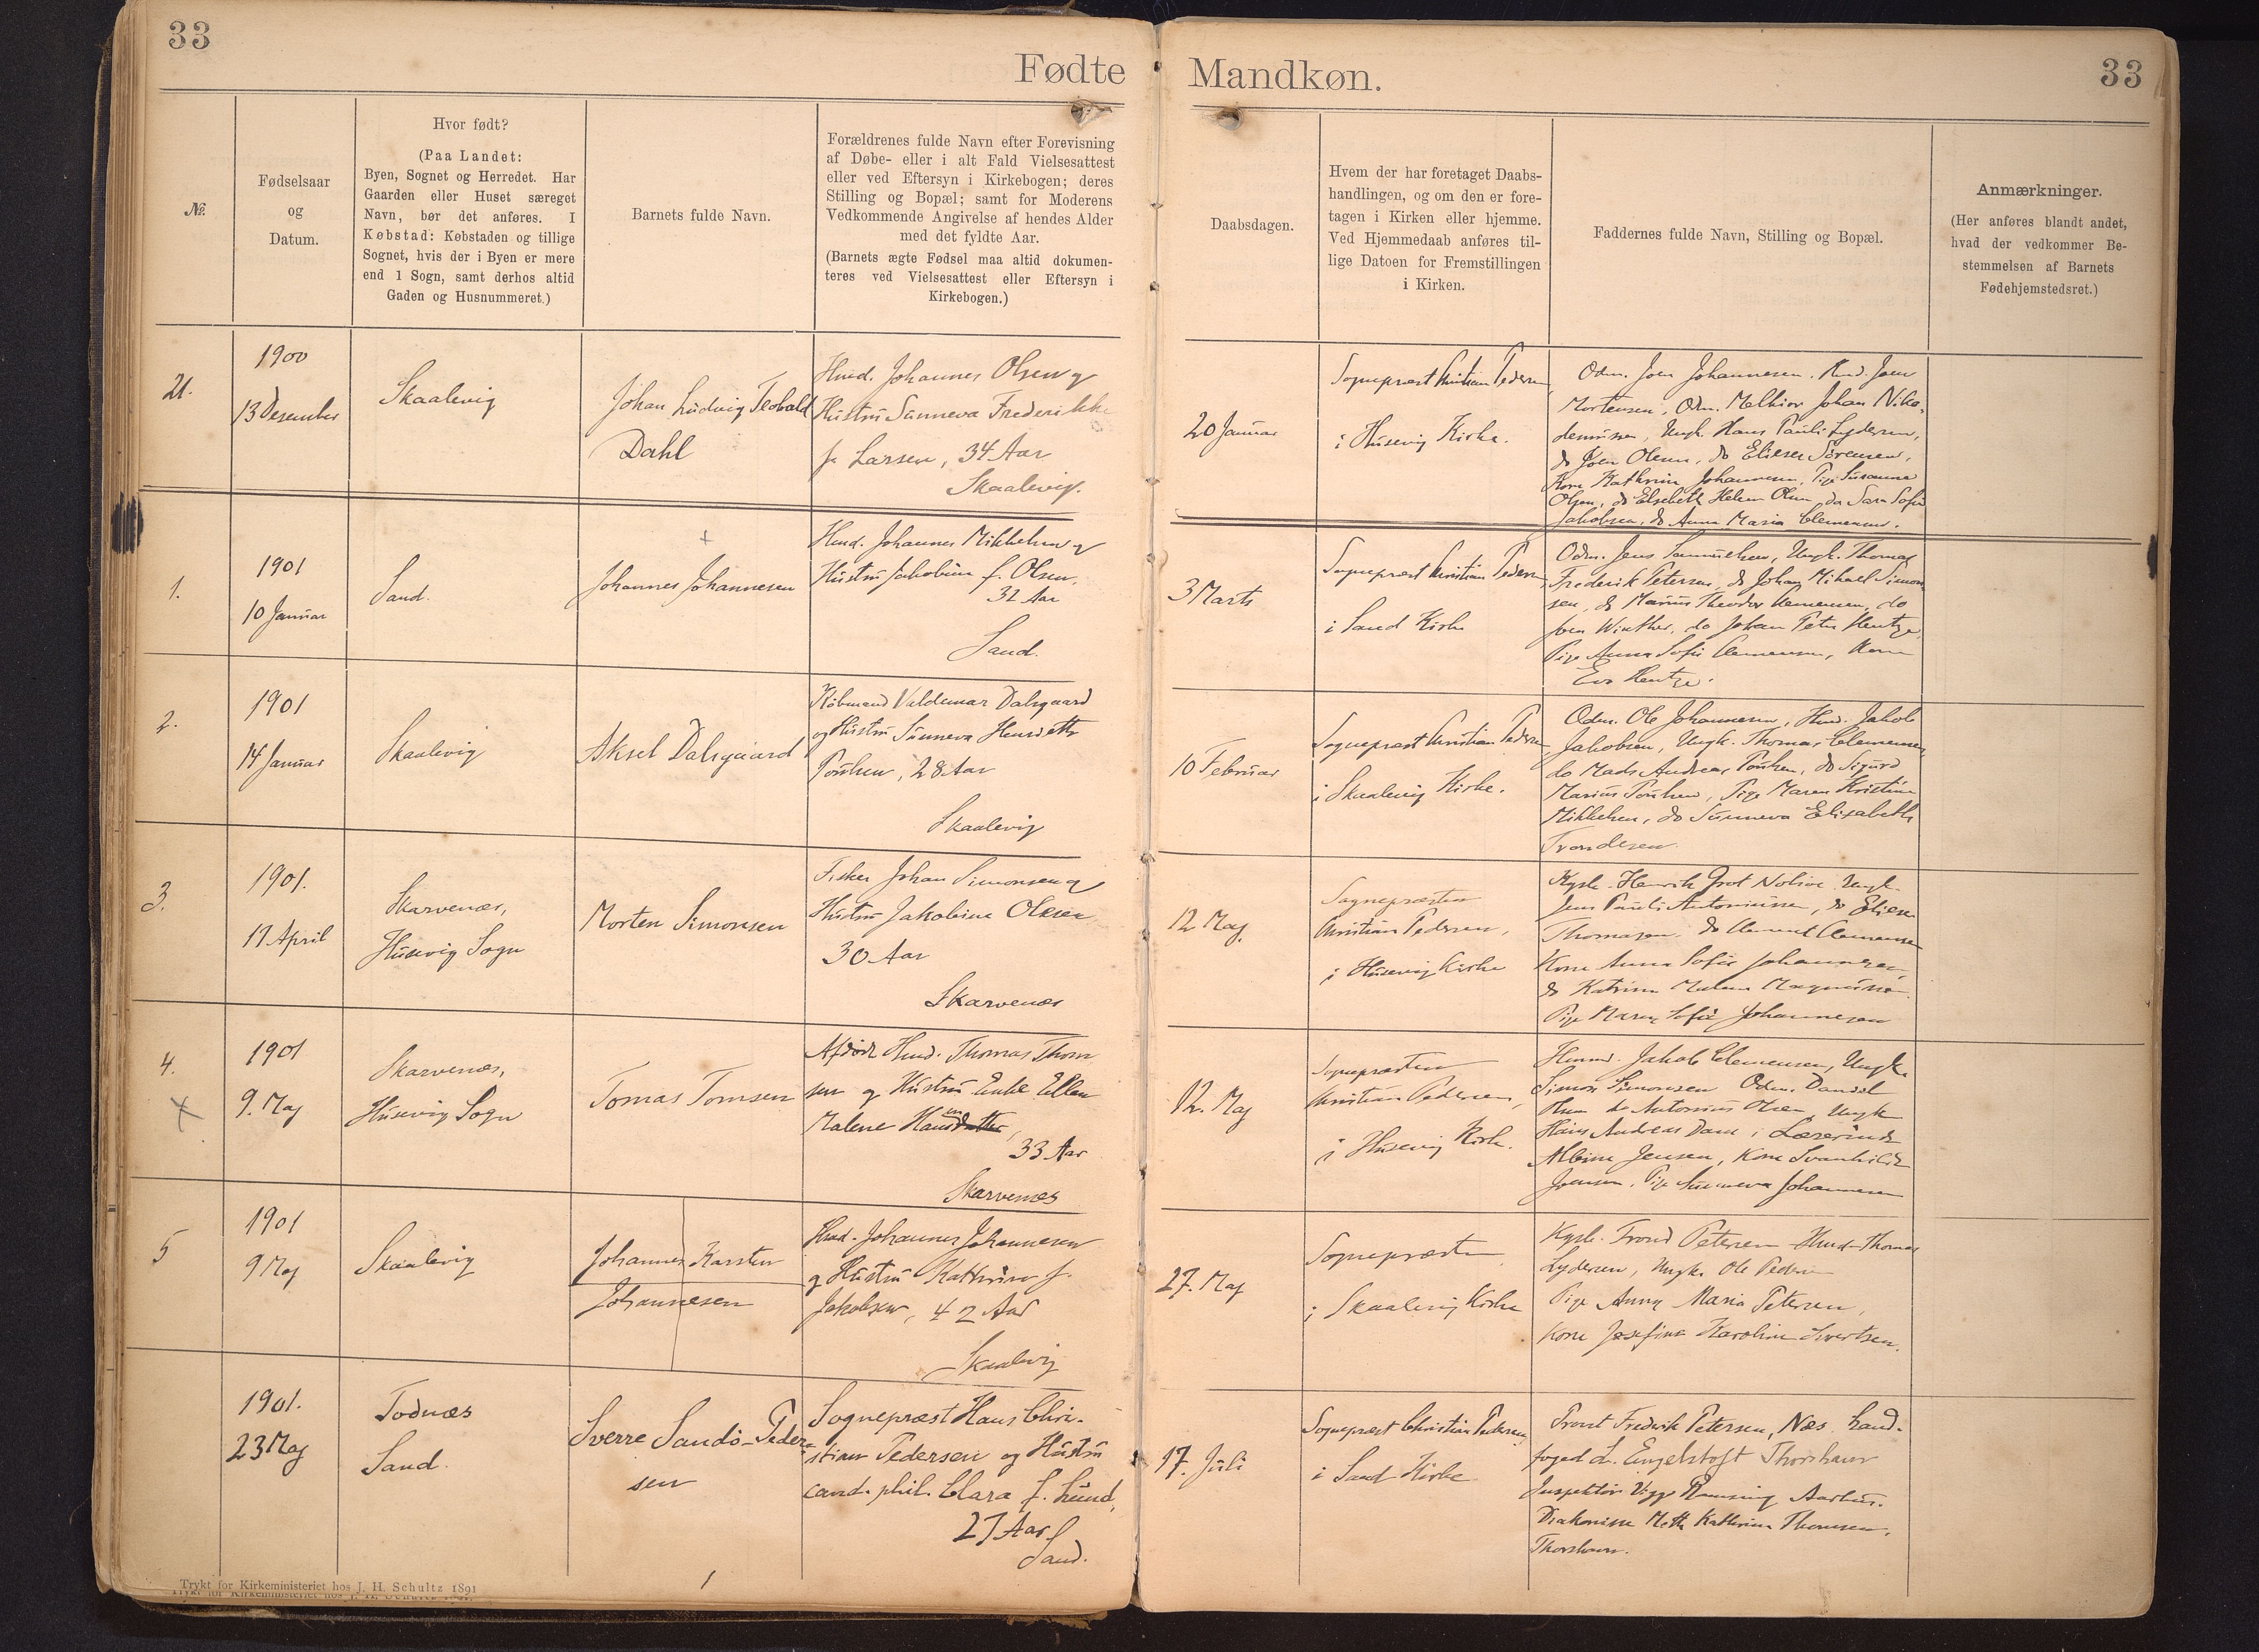 33
Fødte
Mandkøn.
33
№.
Fødselsaar
og
Datum.
Hvor født?
(Paa Landet:
Byen, Sognet og Herredet. Har
Gaarden eller Huset særeget
Navn, bør det anføres. I
Købstad: Købstaden og tillige
Sognet, hvis der i Byen er mere
end 1 Sogn, samt derhos altid
Gaden og Husnummeret.)
Barnets fulde Navn.
Forældrenes fulde Navn efter Forevisning
af Døbe- eller i alt Fald Vielsesattest
eller ved Eftersyn i Kirkebogen; deres
Stilling og Bopæl; samt for Moderens
Vedkommende Angivelse af hendes Alder
med det fyldte Aar.
(Barnets ægte Fødsel maa altid dokumen-
teres ved Vielsesattest eller Eftersyn i
Kirkebogen.)
Daabsdagen.
Hvem der har foretaget Daabs-
handlingen, og om den er fore-
tagen i Kirken eller hjemme.
Ved Hjemmedaab anføres til-
lige Datoen for Fremstillingen
i Kirken.
Faddernes fulde Navn, Stilling og Bopæl.
Anmærkninger.
(Her anføres blandt andet,
hvad der vedkommer Be-
stemmelsen af Barnets
Fødehjemstedsret.)
21.
1900
13 Desember
Skaalevig
Johan Ludvig Teobald
Dahl
Hmd. Johannes Olsen og
Hustru Sanneva Frederikke
f. Larsen, 34 Aar
Skaalevig.
20 Januar
Sognepræst Kristian Pedersen
i Husevig Kirke.
Odm. Joen Johannesen. Hmd. Joen
Mortensen, Odm. Melkior Johan Niko-
demussen, Ungk. Hans Pauli Lydersen,
do Joen Olsen, do Elieser Sörensen,
Kone Kathrine Johannesen, Pige Susanne
Olsen, do Elsebeth Helene Olsen, do Sara Sofie
Jakobsen, do Anna Maria Clemensen.
1.
1901
10 Januar
Sand.
Johannes Johannesen
Hmd. Johannes Mikkelsen og
Hustru Jakobine f. Olsen,
32 Aar
Sand.
3 Marts
Sognepræst Kristian Pedersen
i Sand Kirke
Odm. Jens Samuelsen, Ungk. Thomas
Frederik Petersen, do Johan Mikael Simon-
sen, do Marius Theodor Clemensen, do
Joen Winther, do Johan Peter Hentze,
Pige Anna Sofie Clemensen, Kone
Eva Hentze.
2.
1901
14 Januar
Skaalevig
Aksel Dalsgaard
Købmand Valdemar Dalsgaard
og Hustru Sunneva Henriette
Poulsen, 28 Aar
Skaalevig
10 Februar
Sognepræst Kristian Pedersen
i Skaalevig Kirke.
Odm. Ole Johannesen, Hmd. Jakob
Jakobsen, Ungk. Thomas Clemensen
do Mads Andreas Poulsen, do Sigurd
Marius Poulsen, Pige Maren Kristine
Mikkelsen, do Sunneva Elisabeth
Trondesen
3.
1901.
17 April
Skarvenæs,
Husevig Sogn
Morten Simonsen
Fisker Johan Simonsen og
Hustru Jakobine Olesen
30 Aar
Skarvenæs
12 Maj
Sognepræsten
Kristian Pedersen,
i Husevig Kirke
Kgsb. Henrik Grot Nolsöe Ungk.
Jens Pauli Antoniussen, do Elieser
Thomasen do Clement Clemensen
Kone Anna Sofie Johannesen,
do Katrine Malene Magnussen
Pige Maren Sofie Johannesen
4.
1901
9. Maj
Skarvenæs,
Husevig Sogn
Tomas Tomsen
Afdöde Hmd. Thomas Thom
sen og Hustru Enke Ellen
Malene Hansdatter,
33 Aar
Skarvenæs
12. Maj
Sognepræsten
Kristian Pedersen,
i Husevig Kirke.
Hmd. Jakob Clemensen, Ungk.
Simon Simonsen Odm. Daniel
Olsen do Antonius Olsen, Ungk
Hans Andreas Dam, Lærerinde
Albine Jensen, Kone Svanhilde
Joensen. Pige Sunneva Johannesen
5
1901
9 Maj
Skaalevig
Johannes Karsten
Johannesen
Hmd. Johannes Johannesen
og Hustru Kathrine f.
Jakobsen, 42 Aar
Skaalevig
27. Maj
Sognepræsten
i Skaalevig Kirke
Kgsb. Trond Petersen Hmd. Thomas
Lydersen, Ungk. Ole Pedersen
Pige Anna Maria Petersen,
Kone Josefine Karoline Sivertsen.
1901.
23 Maj
Todnæs
Sand.
Sverre Sandö-Peder-
sen
Sognepræst Hans Chri-
stian Pedersen og Hustru
cand. phil. Clara f. Lund,
27 Aar
Sand.
17. Juli
Sognepræst Christian Pedersen
i Sand Kirke
Provst Fredrik Petersen, Næs. Land-
foged L. Engelstoft Thorshavn
Inspektör Viggo Aarhus.
Diakonisse Mette Kathrine Thomsen,
Thorshavn.
Trykt for Kirkeministeriet hos J. H. Schultz 1891